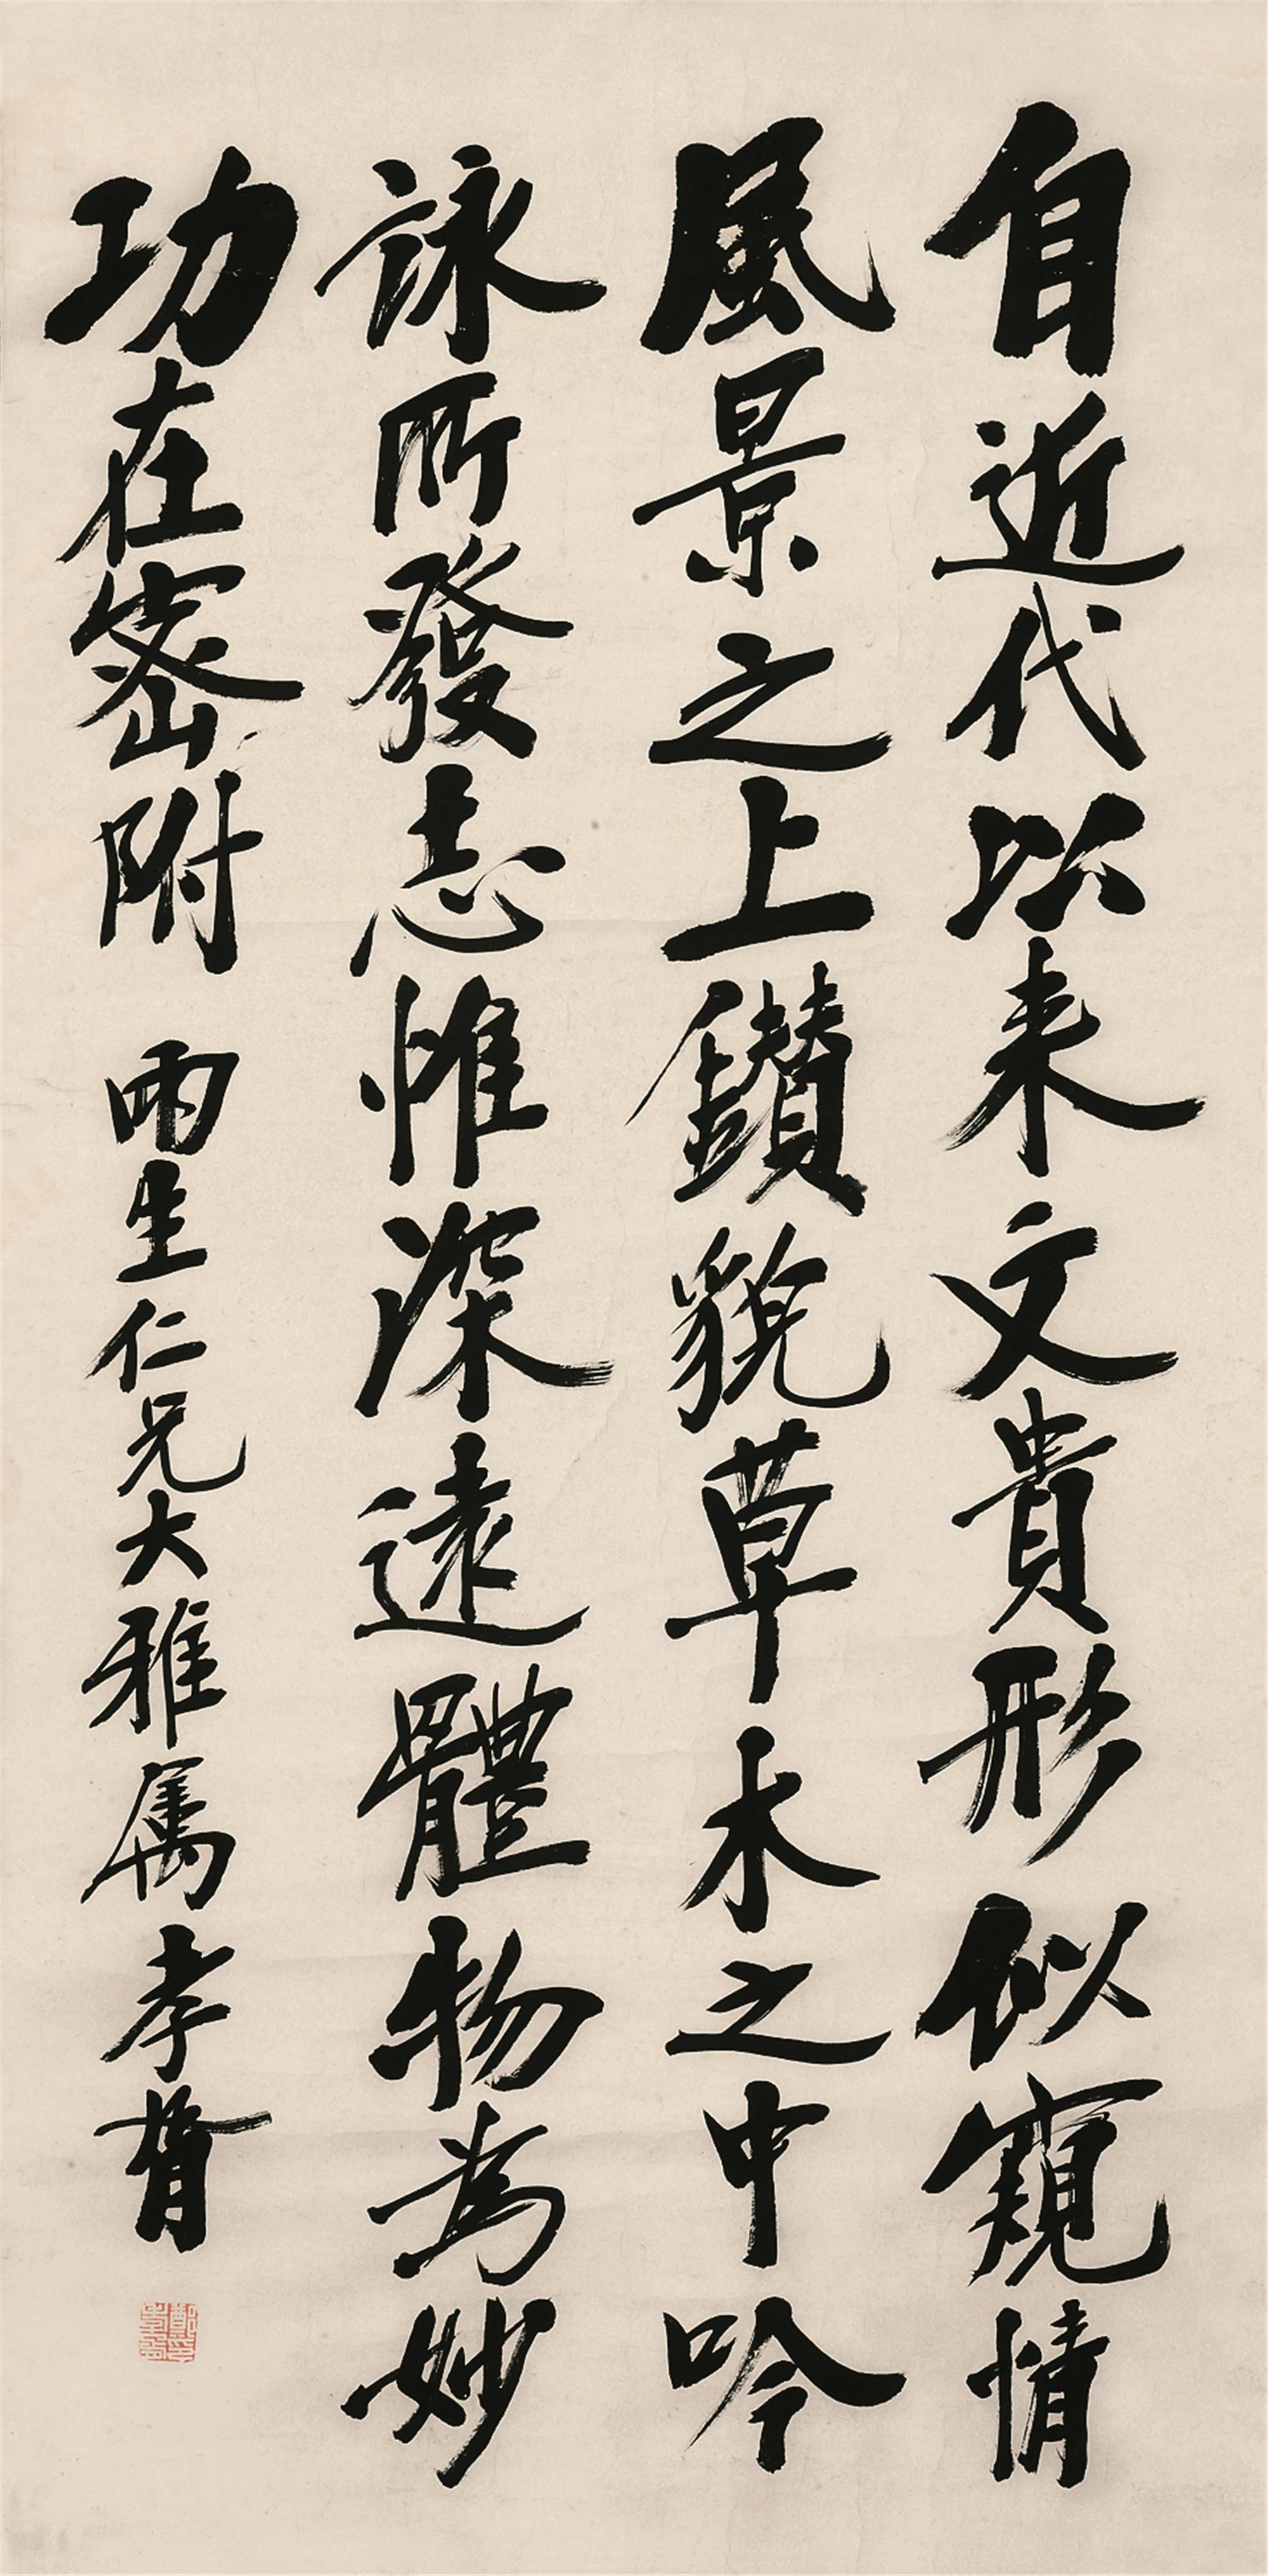 自近代以来文貴形似窺情
風景之上鑚貌草木之中吟
詠所發志惟深遠體物為妙
功在密附 雨生仁兄大雅属 孝胥
鄭孝胥印